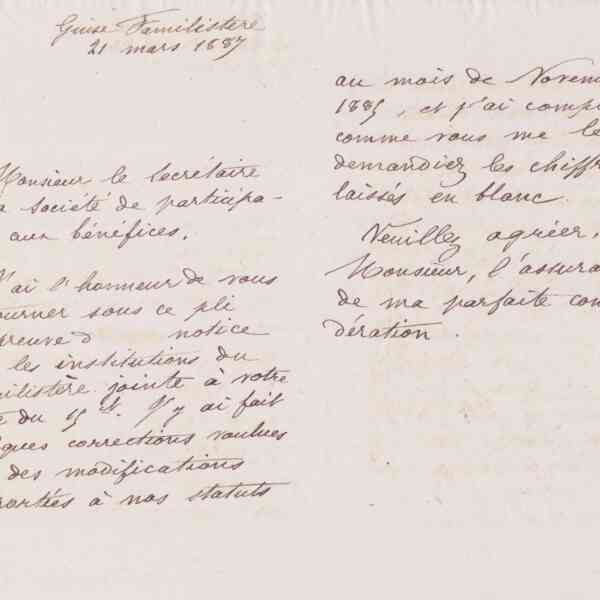 Guise Familistère
21 mars 1887
Monsieur le Secrétaire
a société de participa-
aux bénéfices.
J'ai l'honneur de vous
ourner sous ce pli
preuve d notice
les institutions du
ilistère jointe à votre
du 15 Ct. J'y ai fait
ques corrections voulues
des modifications
portées à nos statuts
au mois de Novem
1885, et j'ai compl
comme vous me le
demandiez les chiffr
laissés en blanc.
Veuillez agréer,
Monsieur, l'assura
de ma parfaite con
dération.